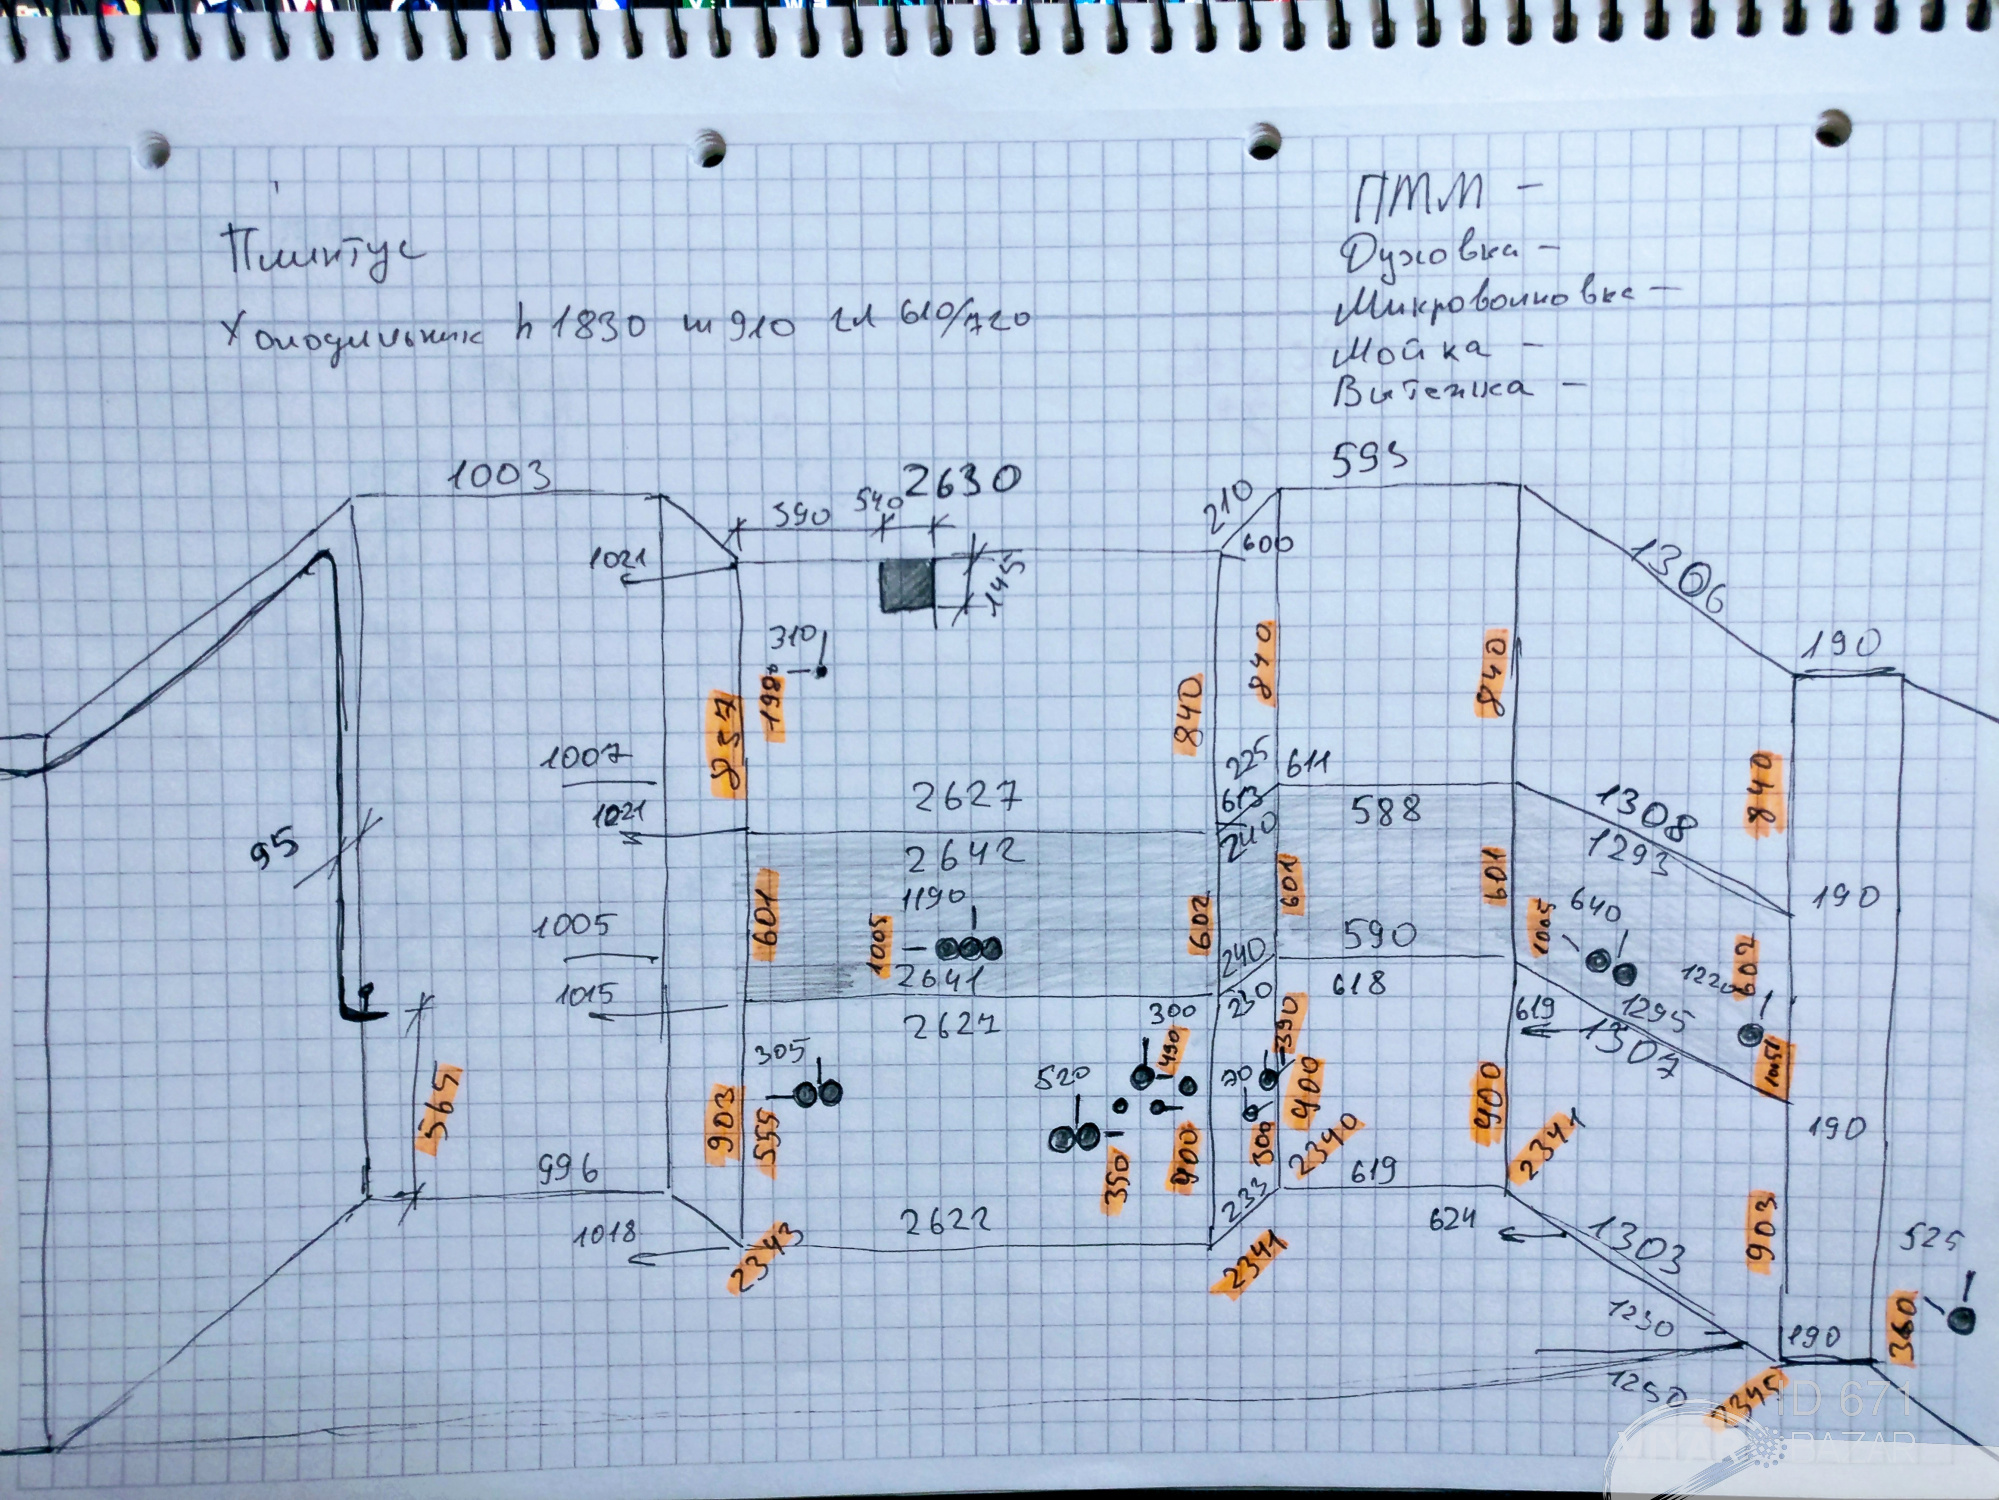 ПММ -
Плинтус
Духовка -
Микроволновка -
Холодильник h 1830 ш 910 гл 610/720
Мойка -
Вытяжка -
1003
2630
593
590
540
210
600
1021
145
1306
310
190
198
857
840
840
840
1007
2627
225
611
840
1021
613
588
1308
2642
240
1293
95
601
1190
601
601
640
190
1005
1005
602
590
1005
602
2641
240
1220
1015
230
618
1295
2627
300
619
1307
305
490
390
520
70
1051
565
903
555
900
400
900
190
350
300
2340
2341
996
619
903
1018
2622
233
624
1303
525
2343
2341
1230
190
360
1250
2345
ID 671
BAZAR